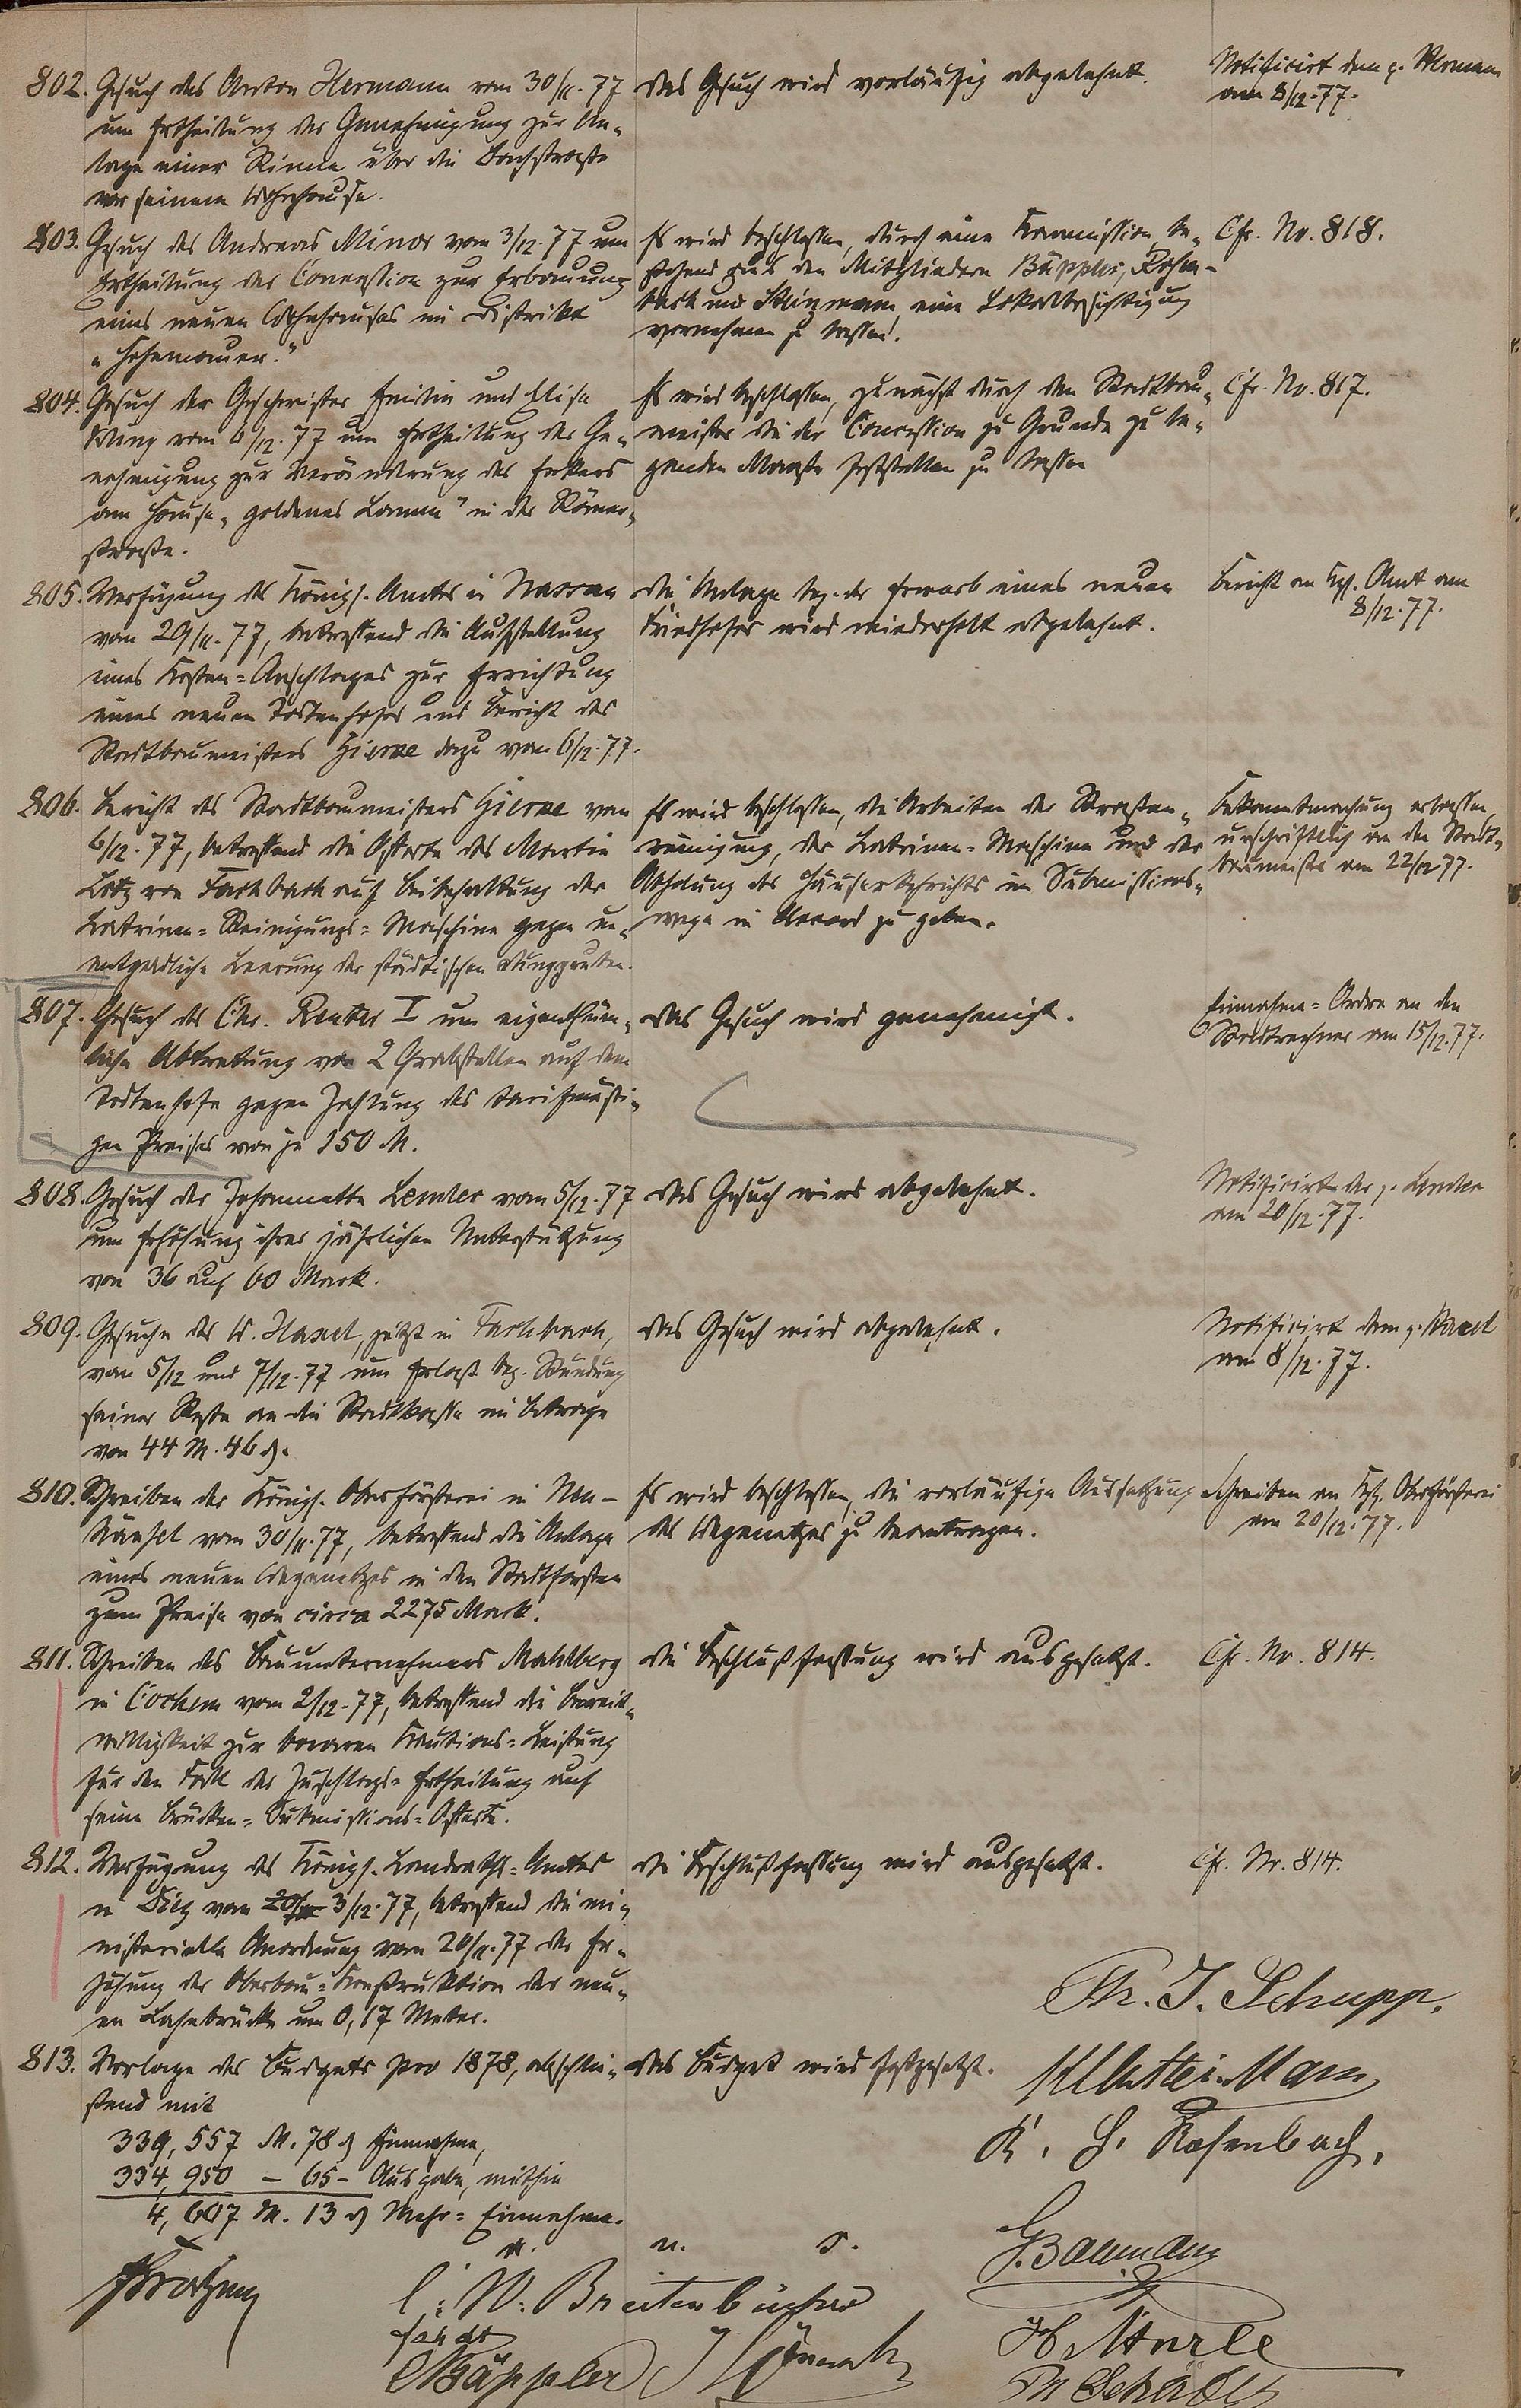 802. Gesuch des Anton Hermann vom 30/11. 77
um Ertheilung der Genehmigung zur An-
lage einer Rinne über die Bachstraße
vor seinem Wohnhause.
Das Gesuch wird vorläufig abgelehnt.
Notificirt dem p. Hermann
am 8/12. 77.
803. Gesuch des Andreas Minor vom 3/12. 77 um
Ertheilung der Concession zur Erbauung
eines neuen Wohnhauses im Distrikt
"Hohemauer."
Es wird beschlossen, durch eine Kommission, be-
stehend aus den Mitgliedern Bäppler, Rosen-
bach und Linzmann, eine Lokalbesichtigung
vornehmen zu lassen.
Cfr. No. 818.
804. Gesuch der Geschwister Emilie und Elise
vom 6/12. 77 um Ertheilung der Ge-
nehmigung zur Veränderung des Erkers
am Hause "goldenes Lamm" in der Römer-
straße.
Es wird beschlossen, zunächst durch den Stadtbau-
meister die der Concession zu Grunde zu le-
genden Maaße feststellen zu lassen
Cfr. No. 817.
805. Verfügung des Königl. Amtes in Nassau
vom 29/11. 77, betreffend die Aufstellung
eines Kosten=Anschlages zur Errichtung
eines neuen Todtenhofes und Bericht des
Stadtbaumeisters Hierae dazu vom 6/12. 77.
Die Anlage bez. der Erwerb eines neuen
Friedhofes wird wiederholt abgelehnt.
Bericht an Kgl. Amt am
8/12. 77.
806. Bericht des Stadtbaumeisters Hierae vom
6/12. 77, betreffend die Offerte des Martin
Lotz von Fachbach auf Beibehaltung der
Latrinen=Reinigungs=Maschine gegen un-
entgeldliche Leerung der städtischen Dunggruben.
Es wird beschlossen, die Arbeiten der Straßen-
reinigung, der Latrinen=Maschine und der
Abholung des Hauserkehrichts im Submissions-
wege in Accord zu geben.
Bekanntmachung erlassen,
urschriftlich an den Stadt-
baumeister am 22/12 77.
807. Gesuch des Chr. Reutter I um eigenthüm-
liche Abtretung von 2 Grabstellen auf dem
Todtenhofe gegen Zahlung des tarifmäßi-
gen Preises von je 150 M.
Das Gesuch wird genehmigt.
Einnahme=Ordre an den
Stadtrechner am 15/12. 77.
808. Gesuch der Johannette Lemler vom 5/12. 77
um Erhöhung ihrer jährlichen Unterstützung
von 36 auf 60 Mark.
Das Gesuch wird abgelehnt.
Notificirt der p. Lemler
am 20/12. 77.
809. Gesuche des W. Haxel, jetzt in Fachbach,
vom 5/12 und 7/12. 77 um Erlaß bez. Stundung
seiner Reste an die Stadtkasse im Betrage
von 44 M. 46 ₰.
Das Gesuch wird abgelehnt.
Notificirt dem p. Haxel
am 8/12. 77.
810. Schreiben der Königl. Oberförsterei in Neu-
häusel vom 30/11. 77, betreffend die Anlage
eines neuen Wegenetzes in den Stadtforsten
zum Preise von circa 2275 Mark.
Es wird beschlossen, die vorläufige Aussetzung
des Wegenetzes zu beantragen.
Schreiben an Kgl. Oberförsterei
am 20/12. 77.
811. Schreiben des Bauunternehmers Mahlberg
in Cochem vom 2/12. 77, betreffend die Bereit-
willigkeit zur baaren Kautions=Leistung
für den Fall der Zuschlags=Ertheilung auf
seine Brücken=Submissions=Offerte.
Die Beschlußfassung wird ausgesetzt.
Cfr. No. 814.
812. Verfügung des Königl. Landraths=Amtes
in Diez vom 3/12. 77, betreffend die mi-
nisterielle Anordnung vom 20/11. 77 der Er-
höhung der Oberbau=Konstruktion der neu-
en Lahnbrücke um 0,17 Meter.
Die Beschlußfassung wird ausgesetzt.
Cfr. Nr. 814.
813. Vorlage des Budgets pro 1878, abschlie-
ßend mit
339,557 M. 78 ₰ Einnahme,
334,950 - 65 - Ausgabe, mithin
4,607 M. 13 ₰ Mehr=Einnahme.
Das Budget wird festgesetzt.
v. u. s.
Ph. J. Schupp.
K. H. Rosenbach.
G. Baumann
C: W: Breitenbücher
H. Merle
Bäppler